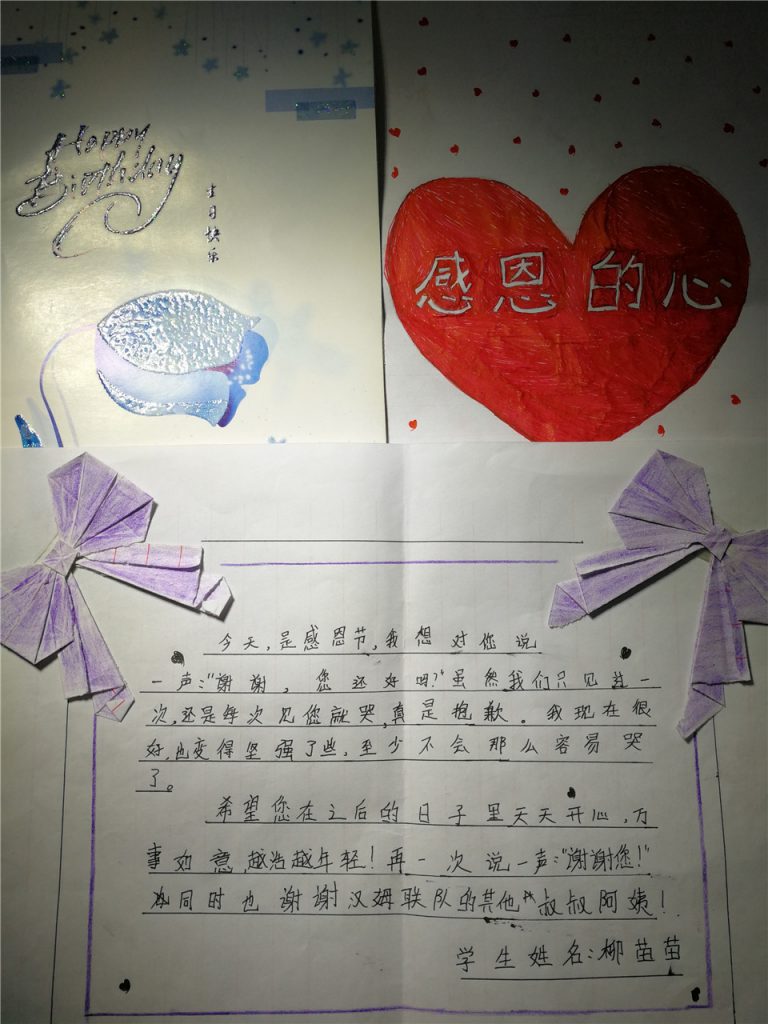 Happy
Birthday
生日快乐
感恩的心
今天,是感恩节,我想对您说
一声:"谢谢,您还好吗?"虽然我们只见过一
次,还是每次见您就哭,真是抱歉。我现在很
好,也变得坚强了些,至少不会那么容易哭
了。
希望您在之后的日子里天天开心,万
事如意,越活越年轻!再一次说一声:"谢谢您!"
同时也谢谢汉姆联队的其他叔叔阿姨!
学生姓名:柳苗苗